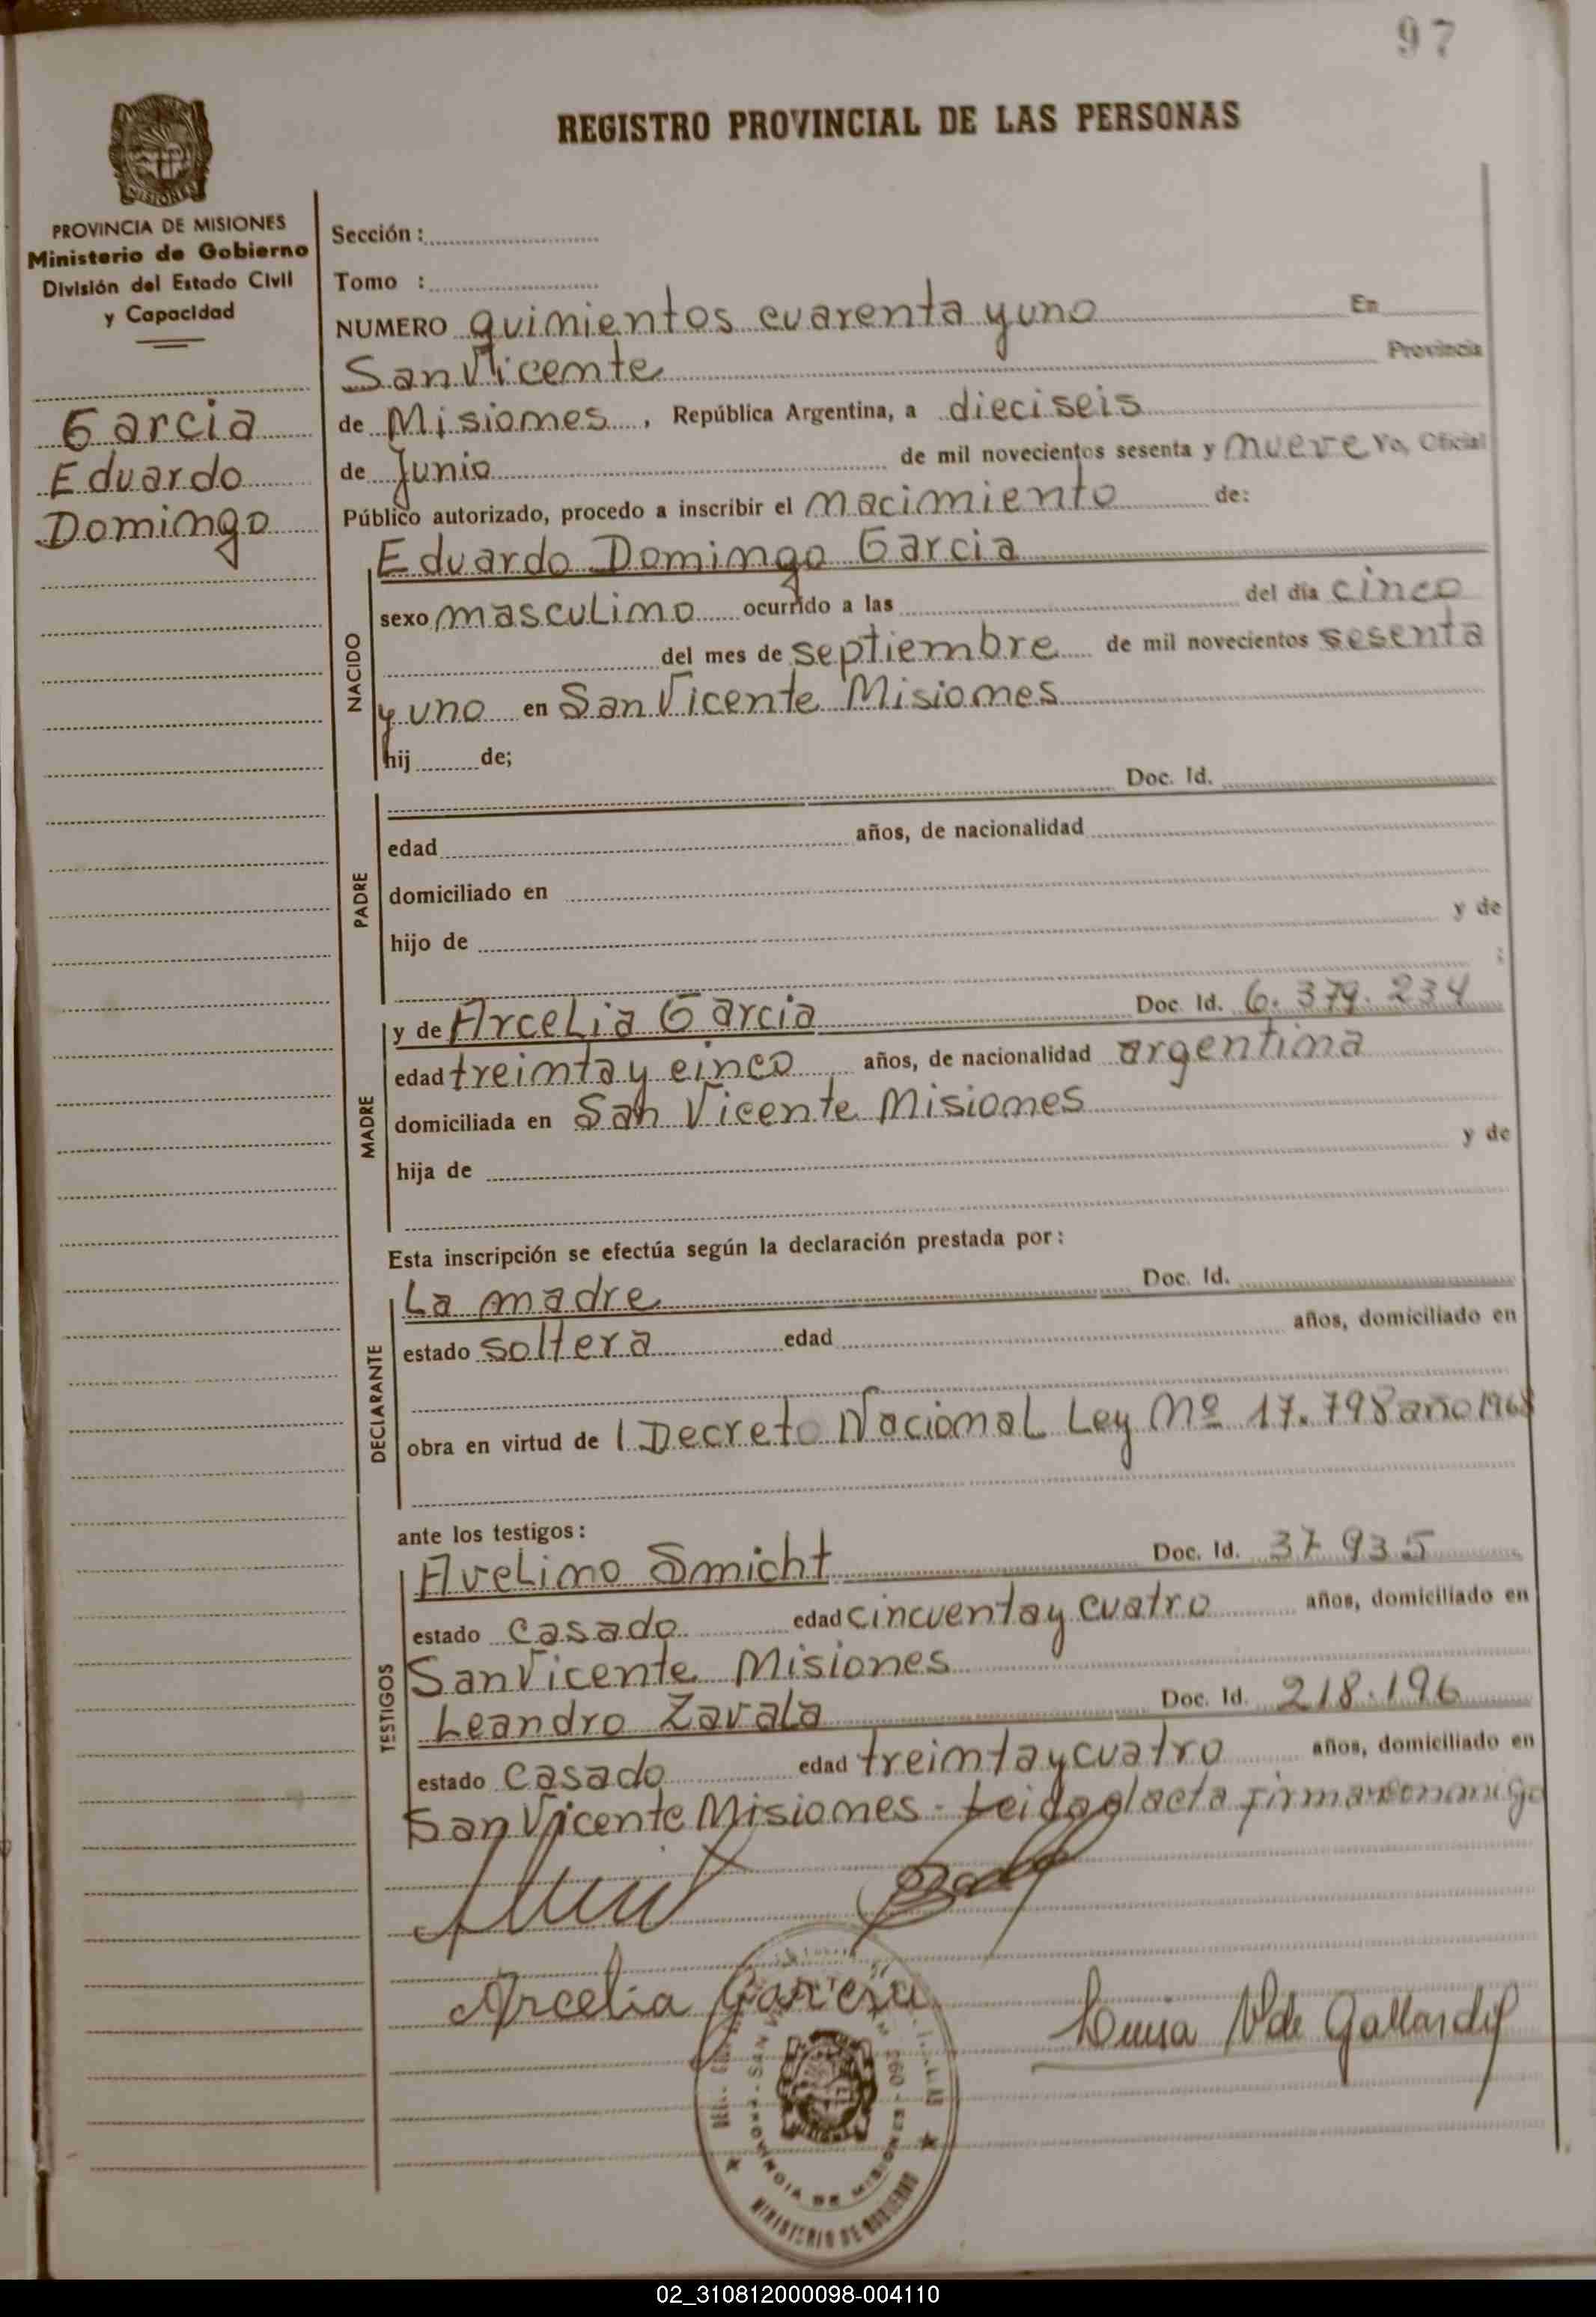 97
REGISTRO PROVINCIAL DE LAS PERSONAS
MISIONES
PROVINCIA DE MISIONES
Ministerio de Gobierno
División del Estado Civil
y Capacidad
Garcia
Eduardo
Domingo
Sección :
Tomo :
NUMERO quinientos cuarenta y uno En
San Vicente Provincia
de Misiones, República Argentina, a dieciseis
de Junio de mil novecientos sesenta y nueve Yo, Oficial
Público autorizado, procedo a inscribir el nacimiento de:
NACIDO
Eduardo Domingo Garcia
sexo masculino ocurrido a las del día cinco
del mes de septiembre de mil novecientos sesenta
y uno en San Vicente Misiones
hij de;
PADRE
Doc. Id.
edad años, de nacionalidad
domiciliado en
hijo de y de
;
MADRE
y de Arcelia Garcia Doc. Id. 6.379.234
edad treinta y cinco años, de nacionalidad argentina
domiciliada en San Vicente Misiones
hija de y de
Esta inscripción se efectúa según la declaración prestada por:
DECLARANTE
La madre Doc. Id.
estado soltera edad años, domiciliado en
obra en virtud de l Decreto Nacional Ley Nº 17.798 año 1968
ante los testigos:
TESTIGOS
Avelino Smicht Doc. Id. 37.935
estado casado edad cincuenta y cuatro años, domiciliado en
San Vicente Misiones
Leandro Zavala Doc. Id. 218.196
estado casado edad treinta y cuatro años, domiciliado en
San Vicente Misiones - Leida el acta firman conmigo
Arcelia Garcia
Luisa V de Gallardo
PROVINCIA DE MISIONES
MINISTERIO DE GOBIERNO
02_310812000098-004110